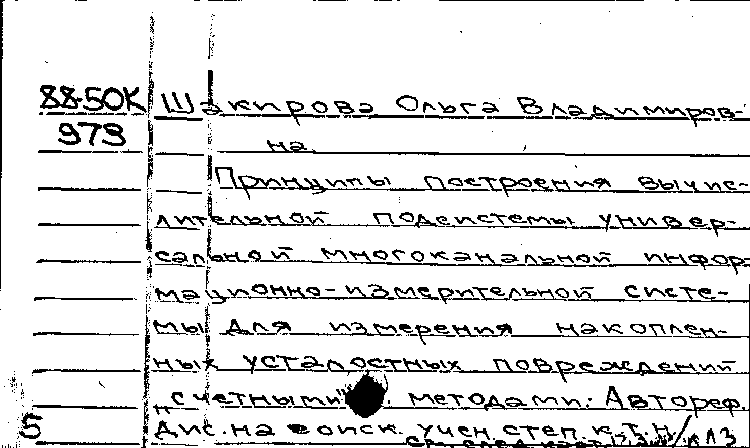 88-50К Шакирова Ольга Владимиров-
979 на
Принципы построения вычис-
лительной подсистемы универ-
сальной многоканальной инфор-
мационно-измерительной систе-
мы для измерения накоплен-
ных усталостных повреждений
"счетными" методами: Автореф.
Дис. на соиск. учен. степ. к.т.н.
см. след. карт.